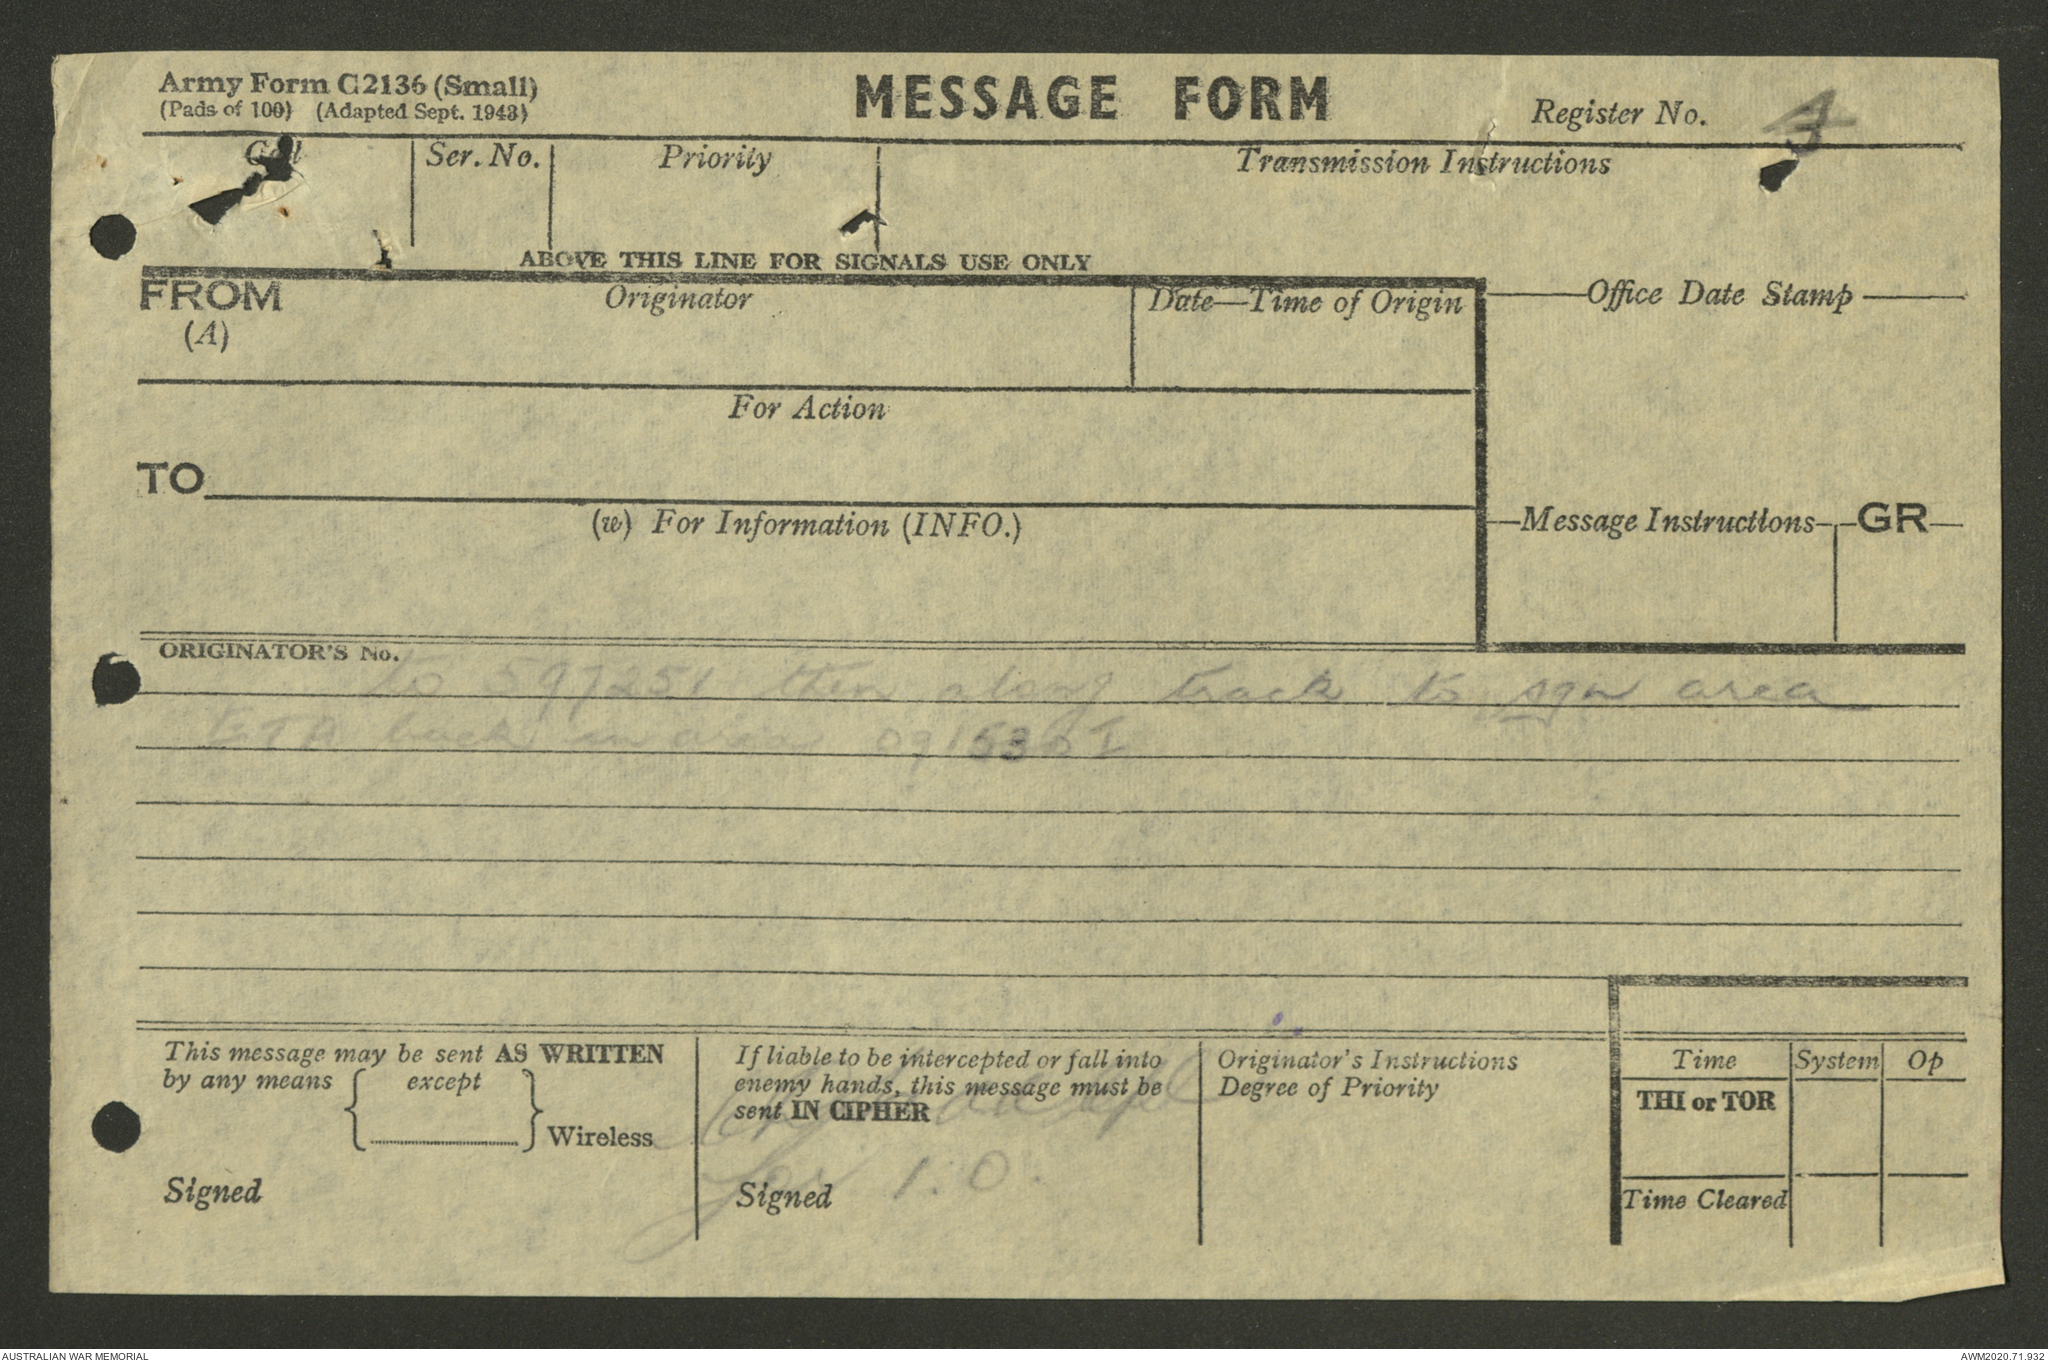 Army Form C2136 (Small)
(Pads of 100) (Adapted Sept. 1943)
MESSAGE FORM
Register No. 4
Call
Ser. No.
Priority
Transmission Instructions
ABOVE THIS LINE FOR SIGNALS USE ONLY
FROM
(A)
Originator
Date—Time of Origin
Office Date Stamp
For Action
TO
(w) For Information (INFO.)
Message Instructions
GR
ORIGINATOR'S No.
to 597251 then along track to sqn area
ETA back in area 091530 I
This message may be sent AS WRITTEN
by any means { except }
Wireless
Signed
If liable to be intercepted or fall into
enemy hands, this message must be
sent IN CIPHER
for I.O.
Signed
Originator's Instructions
Degree of Priority
Time
System
Op
THI or TOR
Time Cleared
AUSTRALIAN WAR MEMORIAL
AWM2020.71.932